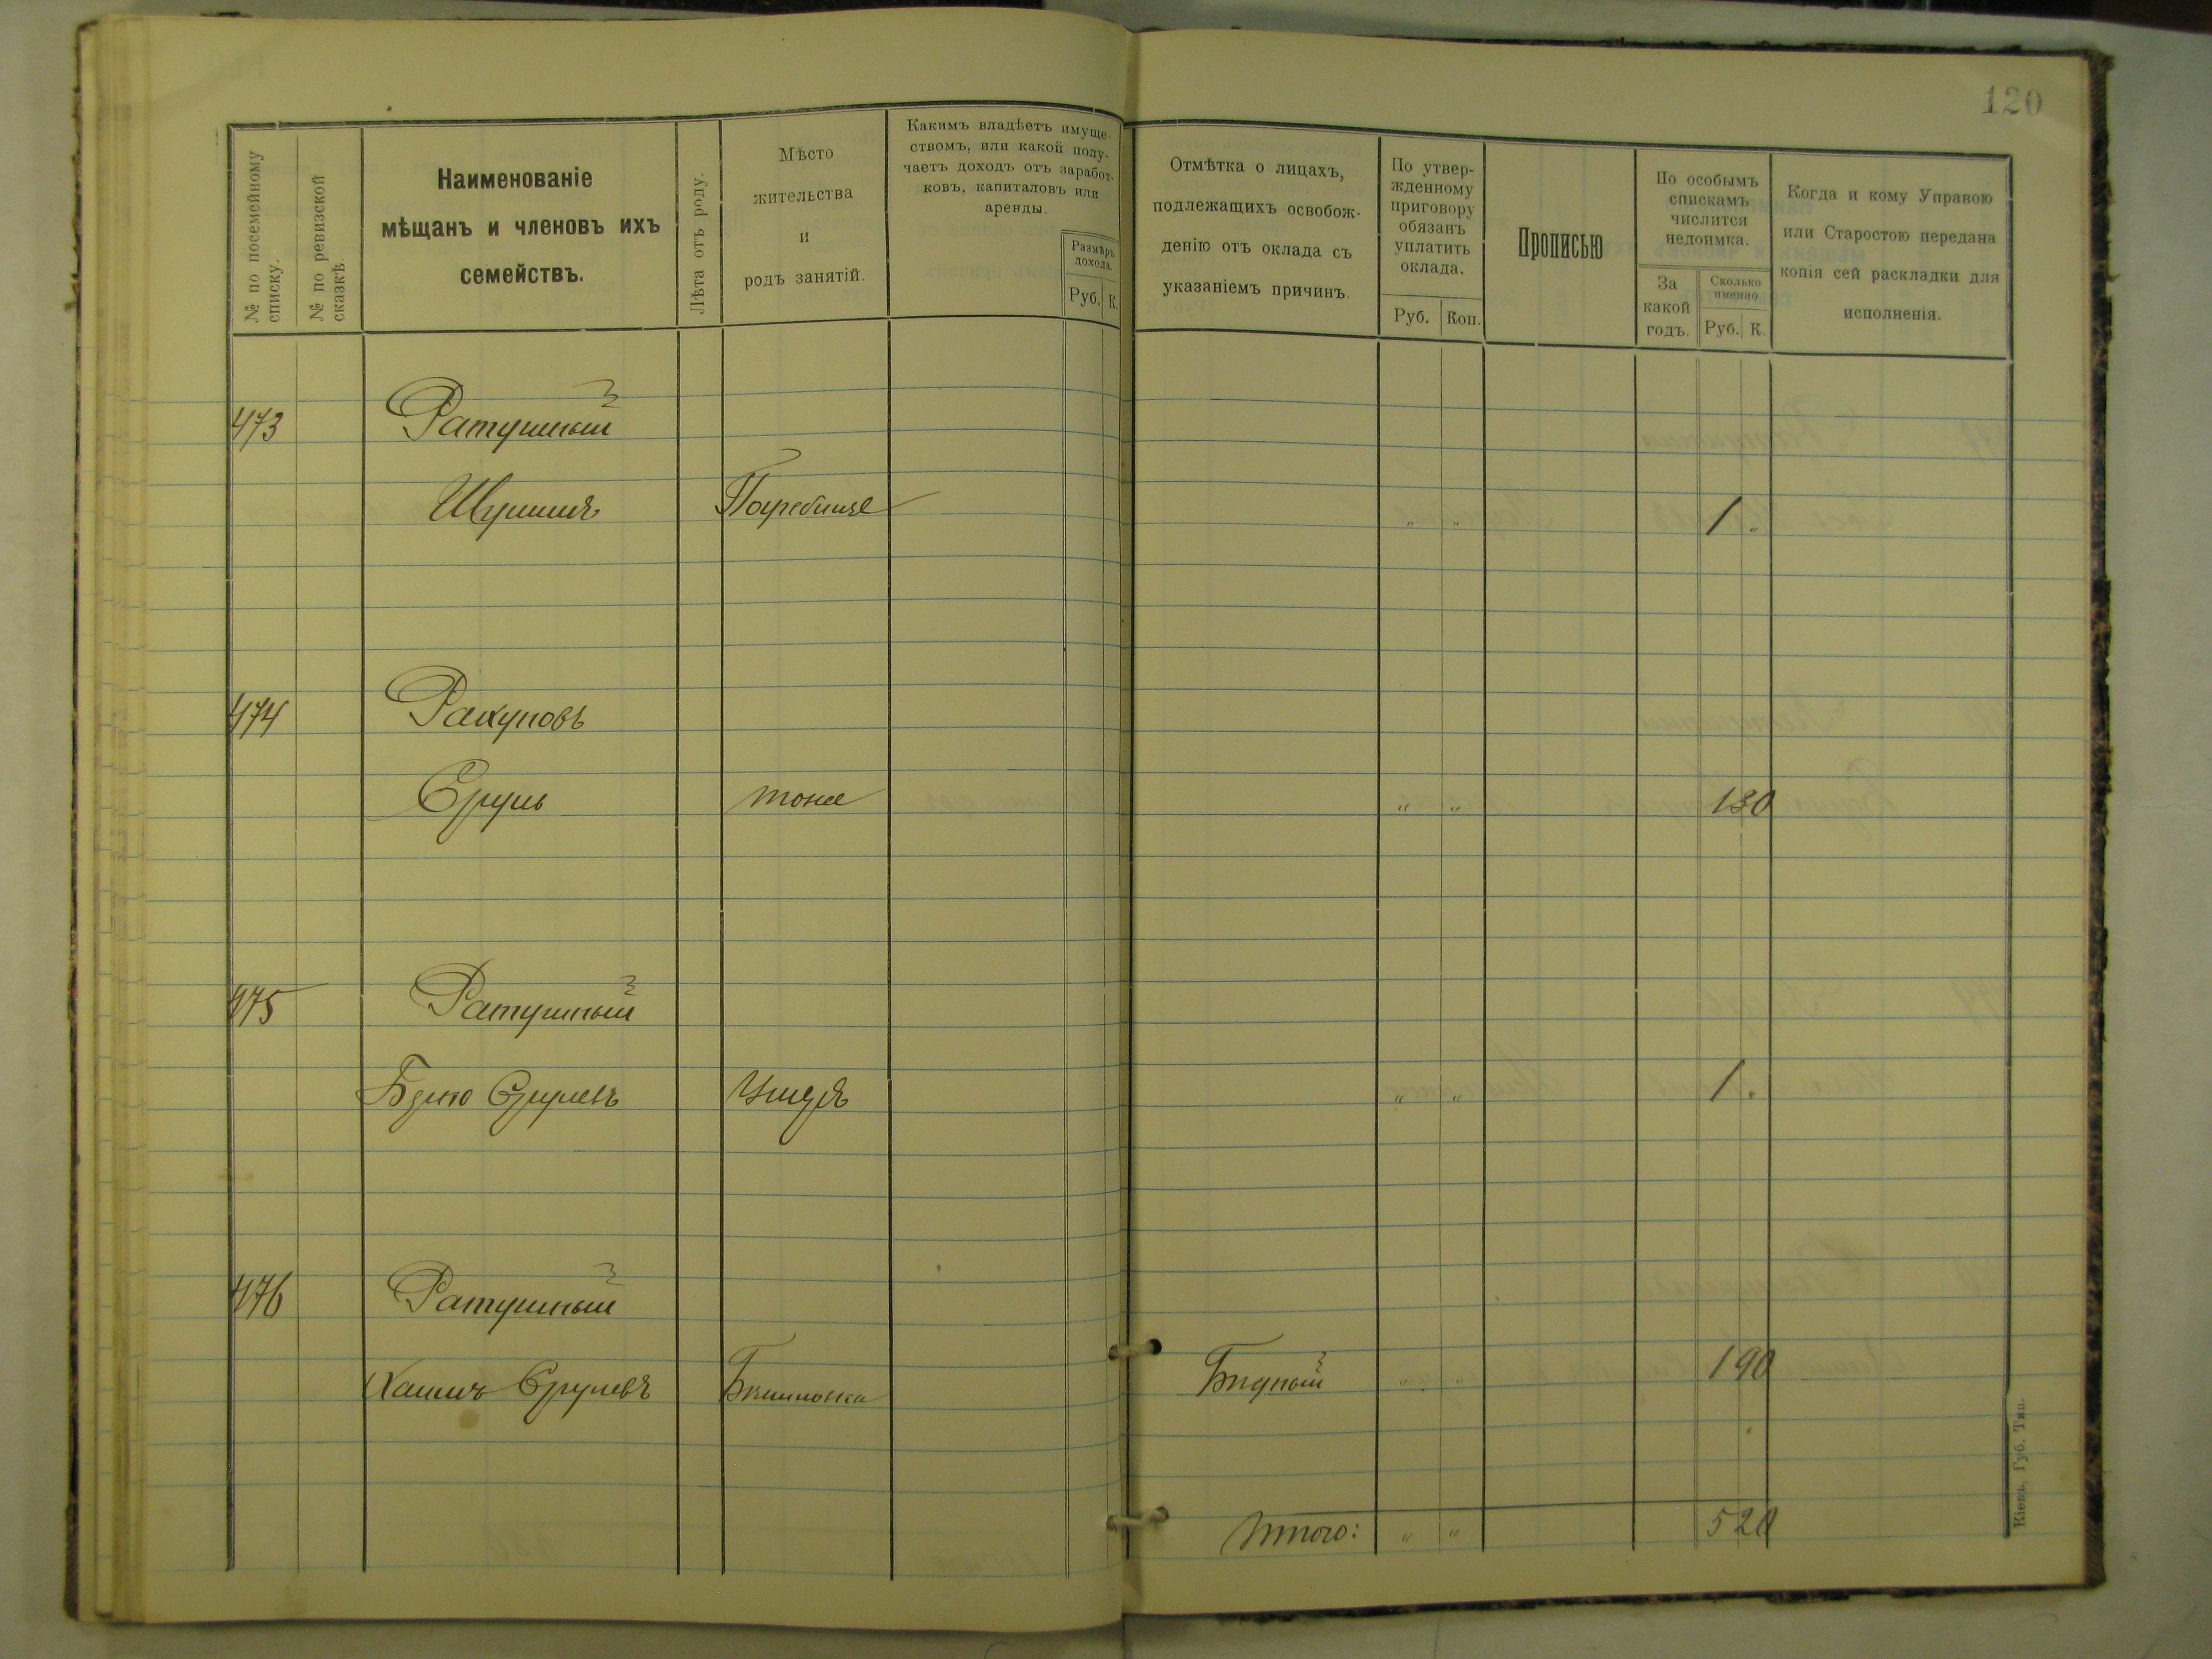 120
№ по посемейному списку.
№ по ревизской сказкѣ.
Наименованіе
мѣщанъ и членовъ ихъ
семействъ.
Лѣта отъ роду.
Мѣсто
жительства
и
родъ занятій.
Какимъ владѣетъ имуще-
ствомъ, или какой полу-
чаетъ доходъ отъ заработ-
ковъ, капиталовъ или
аренды.
Размѣръ
дохода.
Руб. К.
Отмѣтка о лицахъ,
подлежащихъ освобож-
денію отъ оклада съ
указаніемъ причинъ.
По утвер-
жденному
приговору
обязанъ
уплатить
оклада.
Руб. Коп.
Прописью
По особымъ
спискамъ
числится
недоимка.
За
какой
годъ.
Сколько
именно
Руб. К.
Когда и кому Управою
или Старостою передана
копія сей раскладки для
исполненія.
473 Ратушный
Погребище " " 1 "
474
Сруль тоже " " 1 30
475 Ратушный
Срулевъ " " 1 "
476 Ратушный
Срулевъ Бѣдный " " 1 90
Итого: " " 5 20
Кіевъ, Губ. Тип.